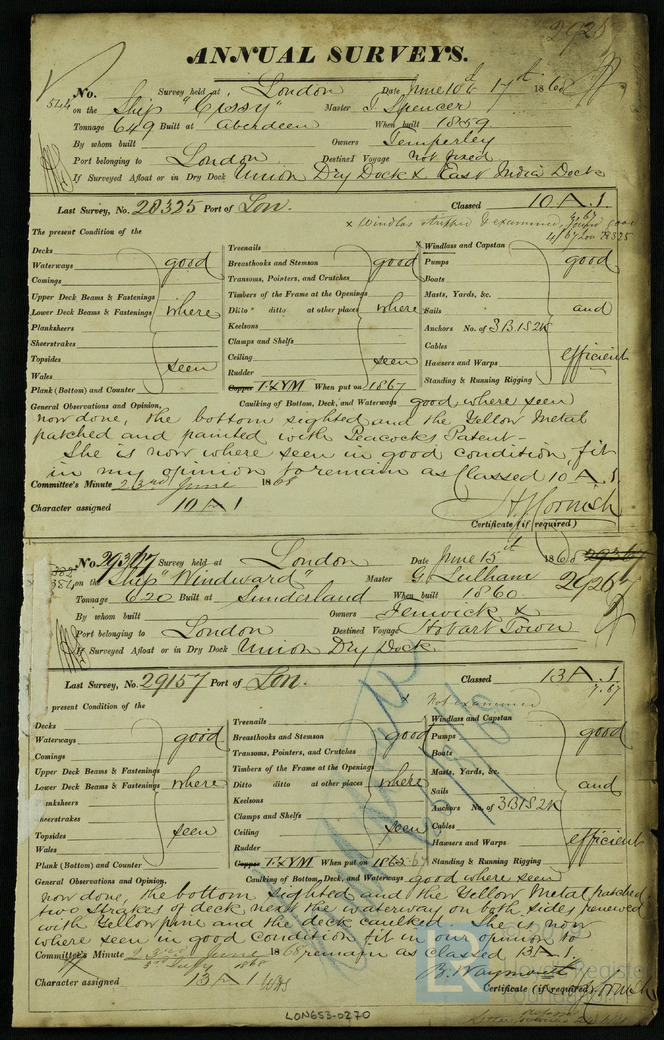 ANNUAL SURVEYS.
No. Survey held at London Date June 10th 17th 1868
544 on the Ship "Cissy" Master J Spencer
Tonnage 649 Built at Aberdeen When built 1859
By whom built Owners Temperley
Port belonging to London Destined Voyage not fixed
If Surveyed Afloat or in Dry Dock Union Dry Dock & East India Dock
Last Survey, No. 28325 Port of Lon. Classed 10 A.1.
x Windlas stripped & examined 4.67
4/67 Lon 28325
The present Condition of the
Decks
Waterways good
Comings
Upper Deck Beams & Fastenings
Lower Deck Beams & Fastenings where
Planksheers
Sheerstrakes
Topsides seen
Wales
Plank (Bottom) and Counter
Treenails
Breasthooks and Stemson good
Transoms, Pointers, and Crutches
Timbers of the Frame at the Openings
Ditto ditto at other places where
Keelsons
Clamps and Shelfs
Ceiling seen
Rudder
Copper F&YM When put on 1867
x Windlass and Capstan
Pumps good
Boats
Masts, Yards, &c.
Sails and
Anchors No. of 3B1S2K
Cables
Hawsers and Warps efficient
Standing & Running Rigging
General Observations and Opinion, Caulking of Bottom, Deck, and Waterways good, where seen
now done, the bottom sighted and the Yellow Metal
patched and painted with Peacocks Patent -
She is now where seen in good condition fit
in my opinion to remain as Classed 10 A.1.
Committee's Minute 23rd June 1868
Character assigned 10 A 1
H. J. Cornish
Certificate (if required)
No. 29317 Survey held at London Date June 15th 1868
on the Ship "Windward" Master G. Lulham 2926
Tonnage 620 Built at Sunderland When built 1860
By whom built Owners Fenwick &
Port belonging to London Destined Voyage Hobart Town
If Surveyed Afloat or in Dry Dock Union Dry Dock.
Last Survey, No. 29157 Port of Lon. Classed 13 A.1.
7.67
x Not examined
present Condition of the
Decks
Waterways good
Comings
Upper Deck Beams & Fastenings
Lower Deck Beams & Fastenings where
nksheers
heerstrakes
Topsides seen
Wales
Plank (Bottom) and Counter
Treenails
Breasthooks and Stemson good
Transoms, Pointers, and Crutches
Timbers of the Frame at the Openings
Ditto ditto at other places where
Keelsons
Clamps and Shelfs
Ceiling seen
Rudder
Copper F&YM When put on 1865
Windlass and Capstan
Pumps good
Boats
Masts, Yards, &c.
Sails and
Anchors No. of 3B1S2K
Cables
Hawsers and Warps efficient
Standing & Running Rigging
General Observations and Opinion, Caulking of Bottom, Deck, and Waterways good where seen
now done, the bottom sighted and the Yellow Metal patched
two strakes of deck next the waterway on both sides renewed
with Yellow pine and the deck caulked. She is now
where seen in good condition fit in our opinion to
Committee's Minute 23rd June 1868 remain as classed 13 A.1.
3rd July 1868
B. Waymouth
Character assigned 13 A 1
Certificate (if required) Cornish
LON653-0270